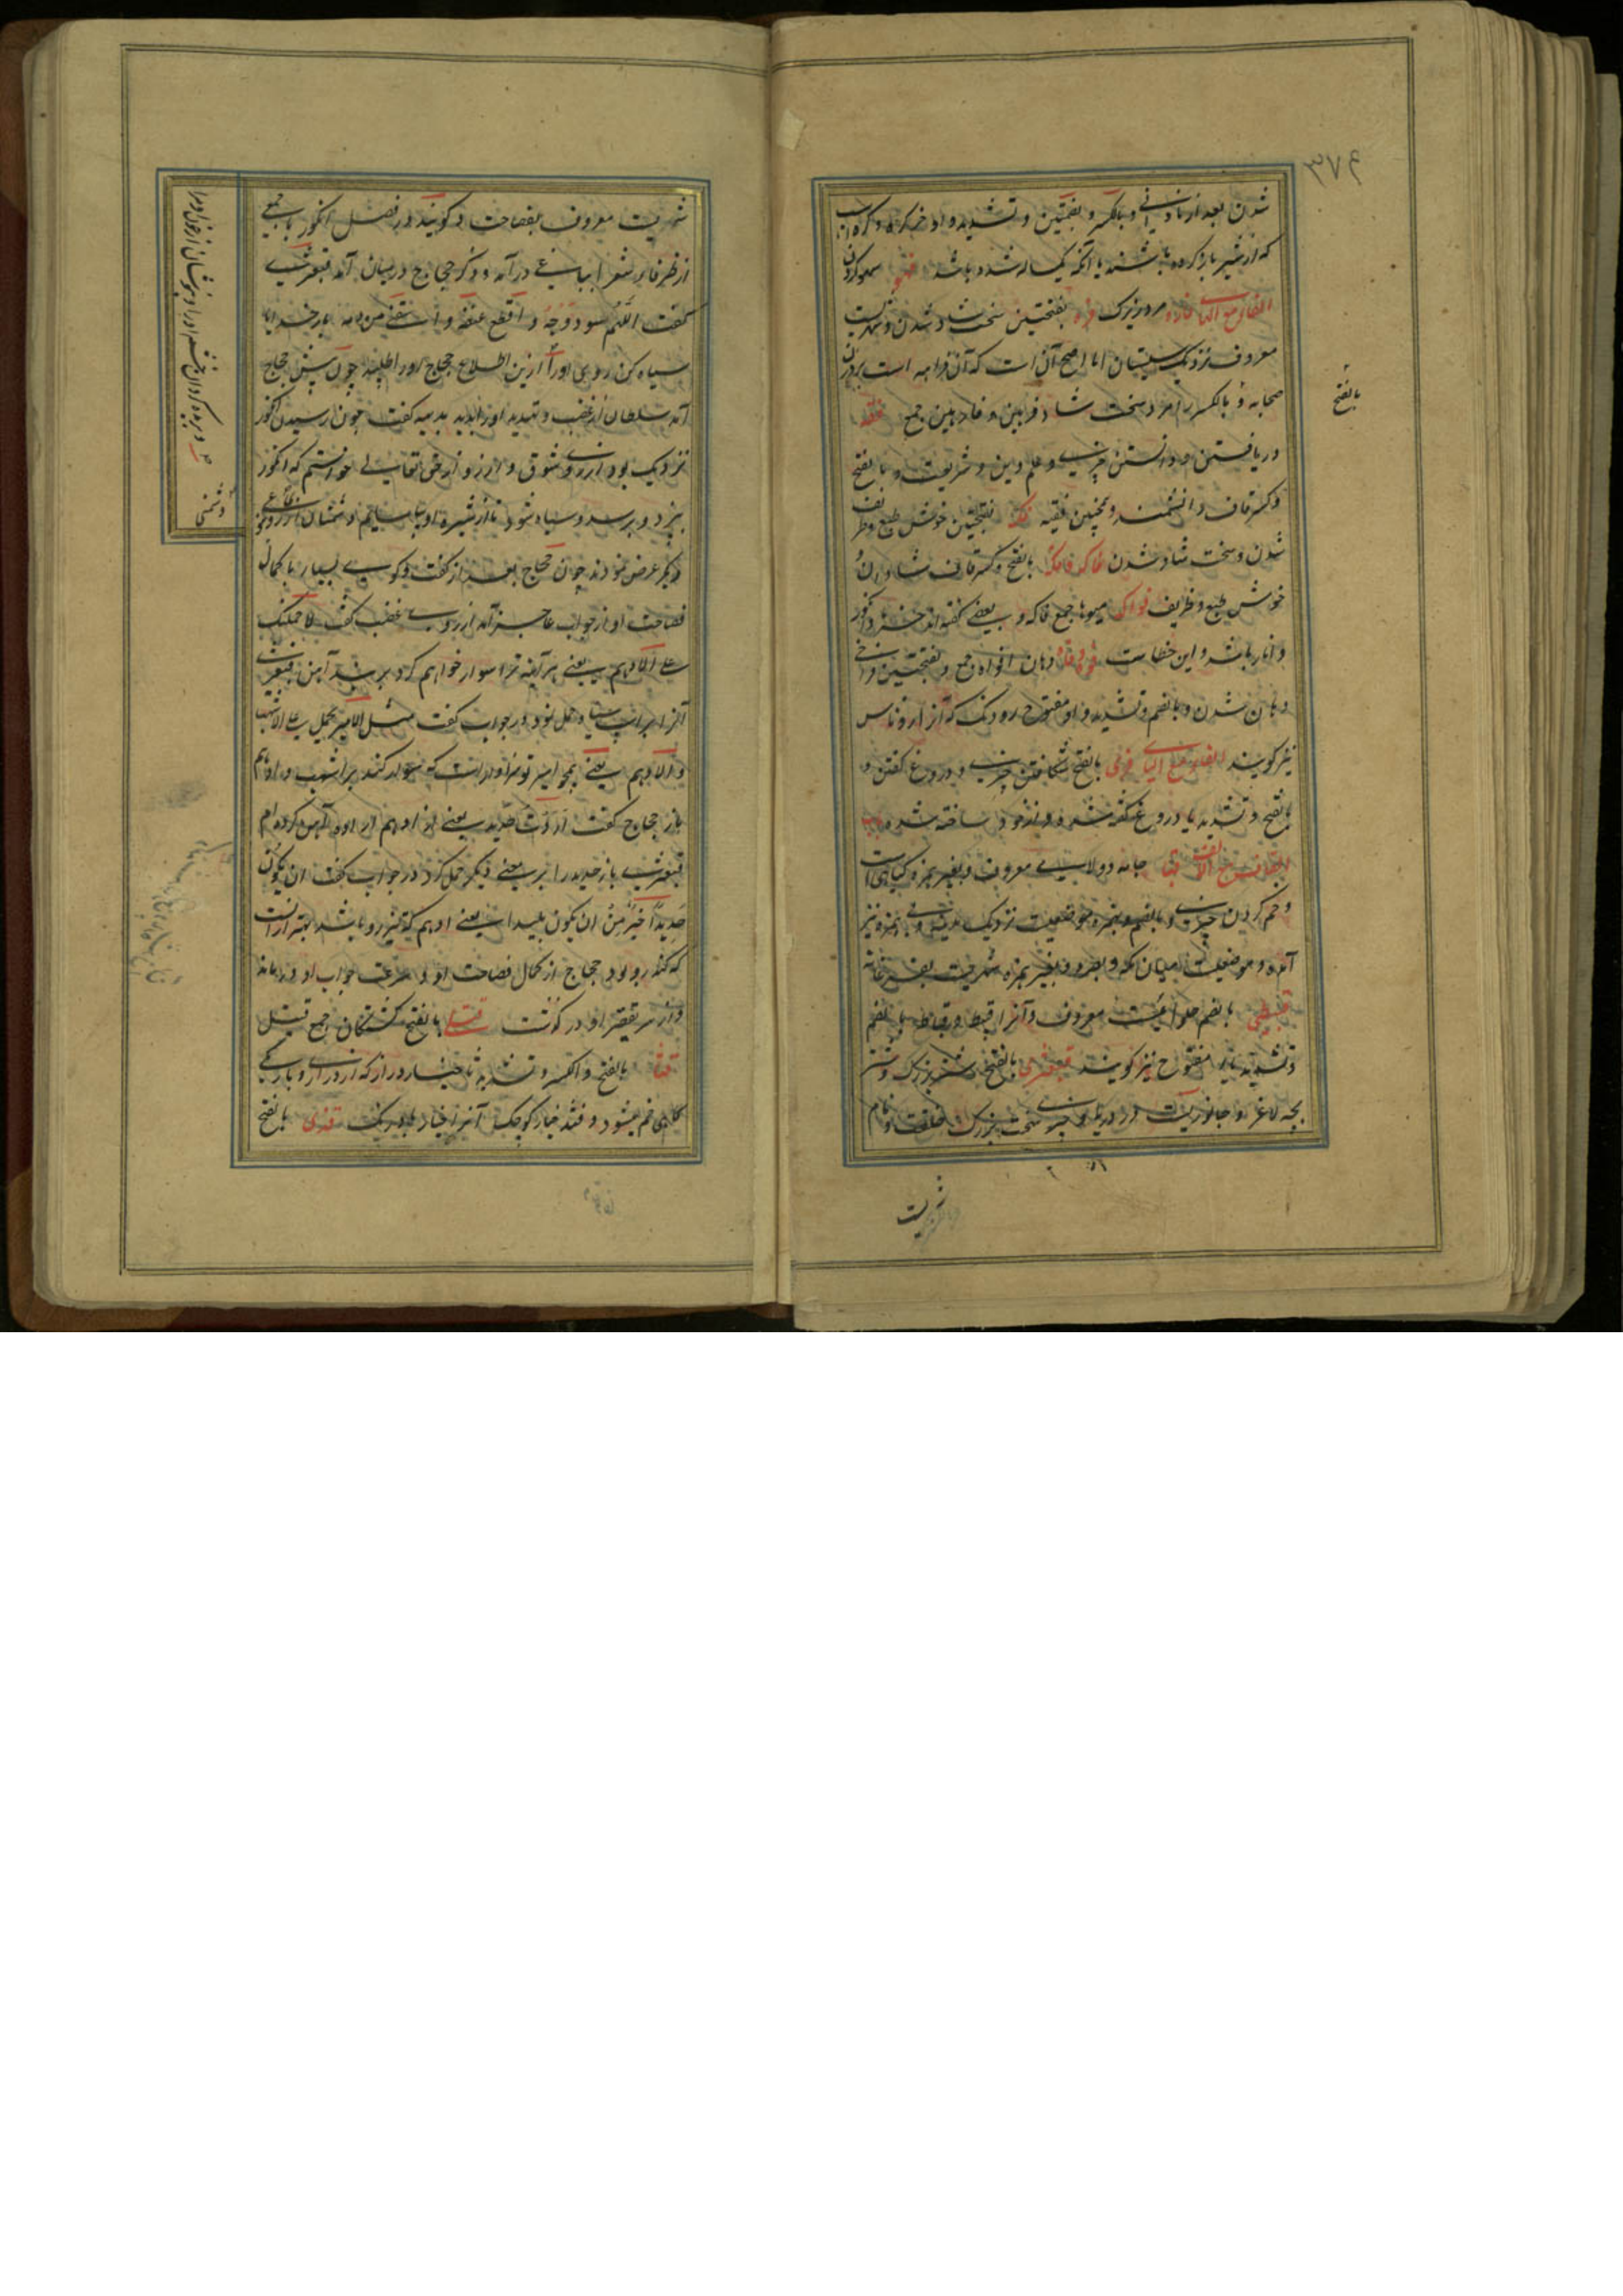 ۳۷۶
شدن بعد از نادانی و بالکسر و بضمتین و تشدید واو خر کره و کره اسب
که از شیر باز کرده باشند یا آنکه یکساله شده باشد سهو کردن
الفاء مع الهاء مرد زیرک فره بفتحتین سخت شاد شدن و شهریست
معروف نزدیک سیستان اما اصح آن است که آن فراهه است بر وزن
صحابه و بالکسر را مرد سخت شاد فرهین و فارهین جمع فقه
دریافتن و دانستن چیزی و علم دین و شریعت و بالفتح
بالفتح
و کسر قاف دانشمند و همچنین فقیه فکه بفتحتین خوش طبع و ظریف
شدن و سخت شاد شدن فاکه بالفتح و کسر کاف شادان
خوش طبع و ظریف فواکه میوها جمع فاکه و بعضی گفته اند جز انگور
و انار باشد و این خطاست فوه دهان افواه جمع و بفتحتین فراخ
دهان شدن و بالضم و تشدید واو مفتوح رودنگ که آنرا روناس
نیز گویند الفاء مع الیاء فری بالفتح شکافتن چیزی و دروغ گفتن و
بالفتح و تشدید یا دروغ گفته شده و از خود ساخته شده باب
القاف مع الالف قبا جامه دولایی معروف و بغیر همزه گیاهی است
و خم کردن چیزی و بالضم و همزه موضعیست نزدیک مدینه و بی همزه نیز
آمده و موضعیست میان مکه و بصره و بغیر همزه شهریست بفرغانه
قبیطی بالضم حلوائیست معروف و آنرا قبیط و قباط بالضم
و تشدید باء مفتوح نیز گویند قبعثری بالفتح شتر بزرگ و شتر
بچه لاغر و جانوریست در دریا و چیزی سخت بزرگ خلقت و نام
شهریست معروف بفصاحت گویند در فصل انگور با جمعی
از ظرفا بر شعرا بباغی درآمد و ذکر حجاج در میان آمد قبعثری
گفت اللهم سود وجهه و اقطع عنقه و اسقنی من دمه بار خدایا
سیاه کن روی او را ازین اطلاع حجاج او را طلبید چون پیش حجاج
و ببر گردن خشم او را و بنوشان از خون او مرا
آمد سلطان از غضب و تهدید او را بدید بدیهه گفت چون رسیدن انگور
نزدیک بود از روی شوق و آرزو از حق تعالی خواستم که انگور
بپزد و برسد و سیاه شود تا از شیره او بیاسایم دشمنان از روی
دشمنی
دیگر عرض نمودند چون حجاج بعد از گفت و گوی بسیار با کمال
فصاحت او از جواب عاجز آمد از روی غضب گفت لاحملنک
علی الادهم یعنی هر آینه ترا سوار خواهم کرد بر بند آهن قبعثری
آنرا بر اسب سیاه حمل نمود در جواب گفت مثل الامیر یحمل علی الاشهب
و الادهم یعنی همچو امیر تو سزاوار است که سوار کند بر اشهب و ادهم
باز حجاج گفت اردت حدید یعنی از ادهم اراده آهن کرده ام
قبعثری باز حدید را بر معنی دیگر حمل کرد در جواب گفت ان یکون
حدیدا خیر من ان یکون بلیدا یعنی ادهم که تیز رو باشد بهتر از آنست
که کند رو بود حجاج از کمال فصاحت او و سرعت جواب او درماند
و از سر تقصیر او در گذشت قتلی بالفتح کشتگان جمع قتیل
قثاء بالفتح و الکسر و تشدید ثا خیار دراز که از درازی و باریکی
گاهی خم میشود و قثد خیار کوچک آنرا خیار بادرنگ قذی بالفتح